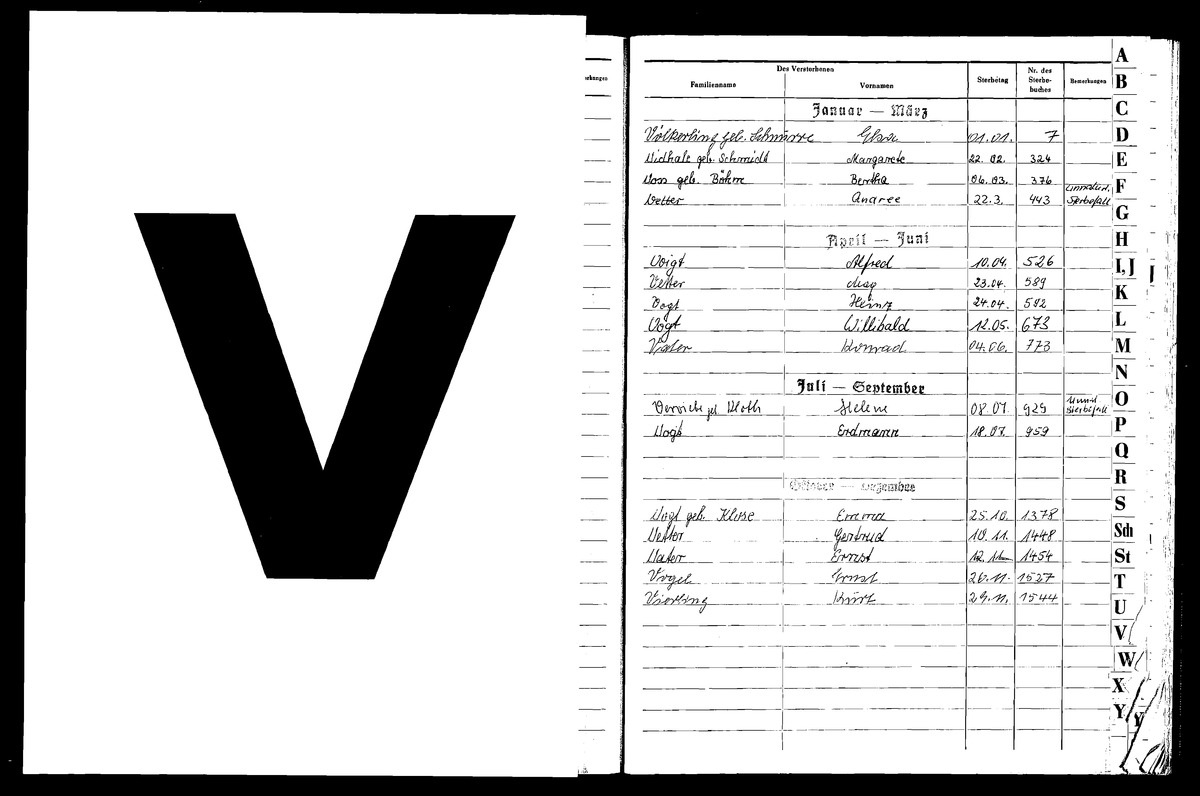 V
Des Verstorbenen
Familienname Vornamen Sterbetag Nr. des Sterbe-buches Bemerkungen
Januar — März
Völkerling geb. Schnurre Elsa 01.01. 7
Vidhalc geb. Schmidt Margarete 22.02. 324
Voss geb. Böhm Bertha 06.03. 376
Vetter Andree 22.3. 443 unnatürl. Sterbefall
April — Juni
Voigt Alfred 10.04. 526
Vetter 23.04. 589
Vogt Heinz 24.04. 592
Vogt Willibald 12.05. 673
Vater Konrad 04.06. 773
Juli — September
geb. Kloth Helene 08.07. 925 Sterbefall
Vogt Erdmann 18.07. 959
Oktober — Dezember
Vogt geb. Klose Emma 25.10. 1378
Vetter Gertrud 10.11. 1448
Vater Ernst 12.11. 1454
Vogel Ernst 26.11. 1527
Vierling Kurt 29.11. 1544
A
B
C
D
E
F
G
H
I, J
K
L
M
N
O
P
Q
R
S
Sch
St
T
U
V
W
X
Y